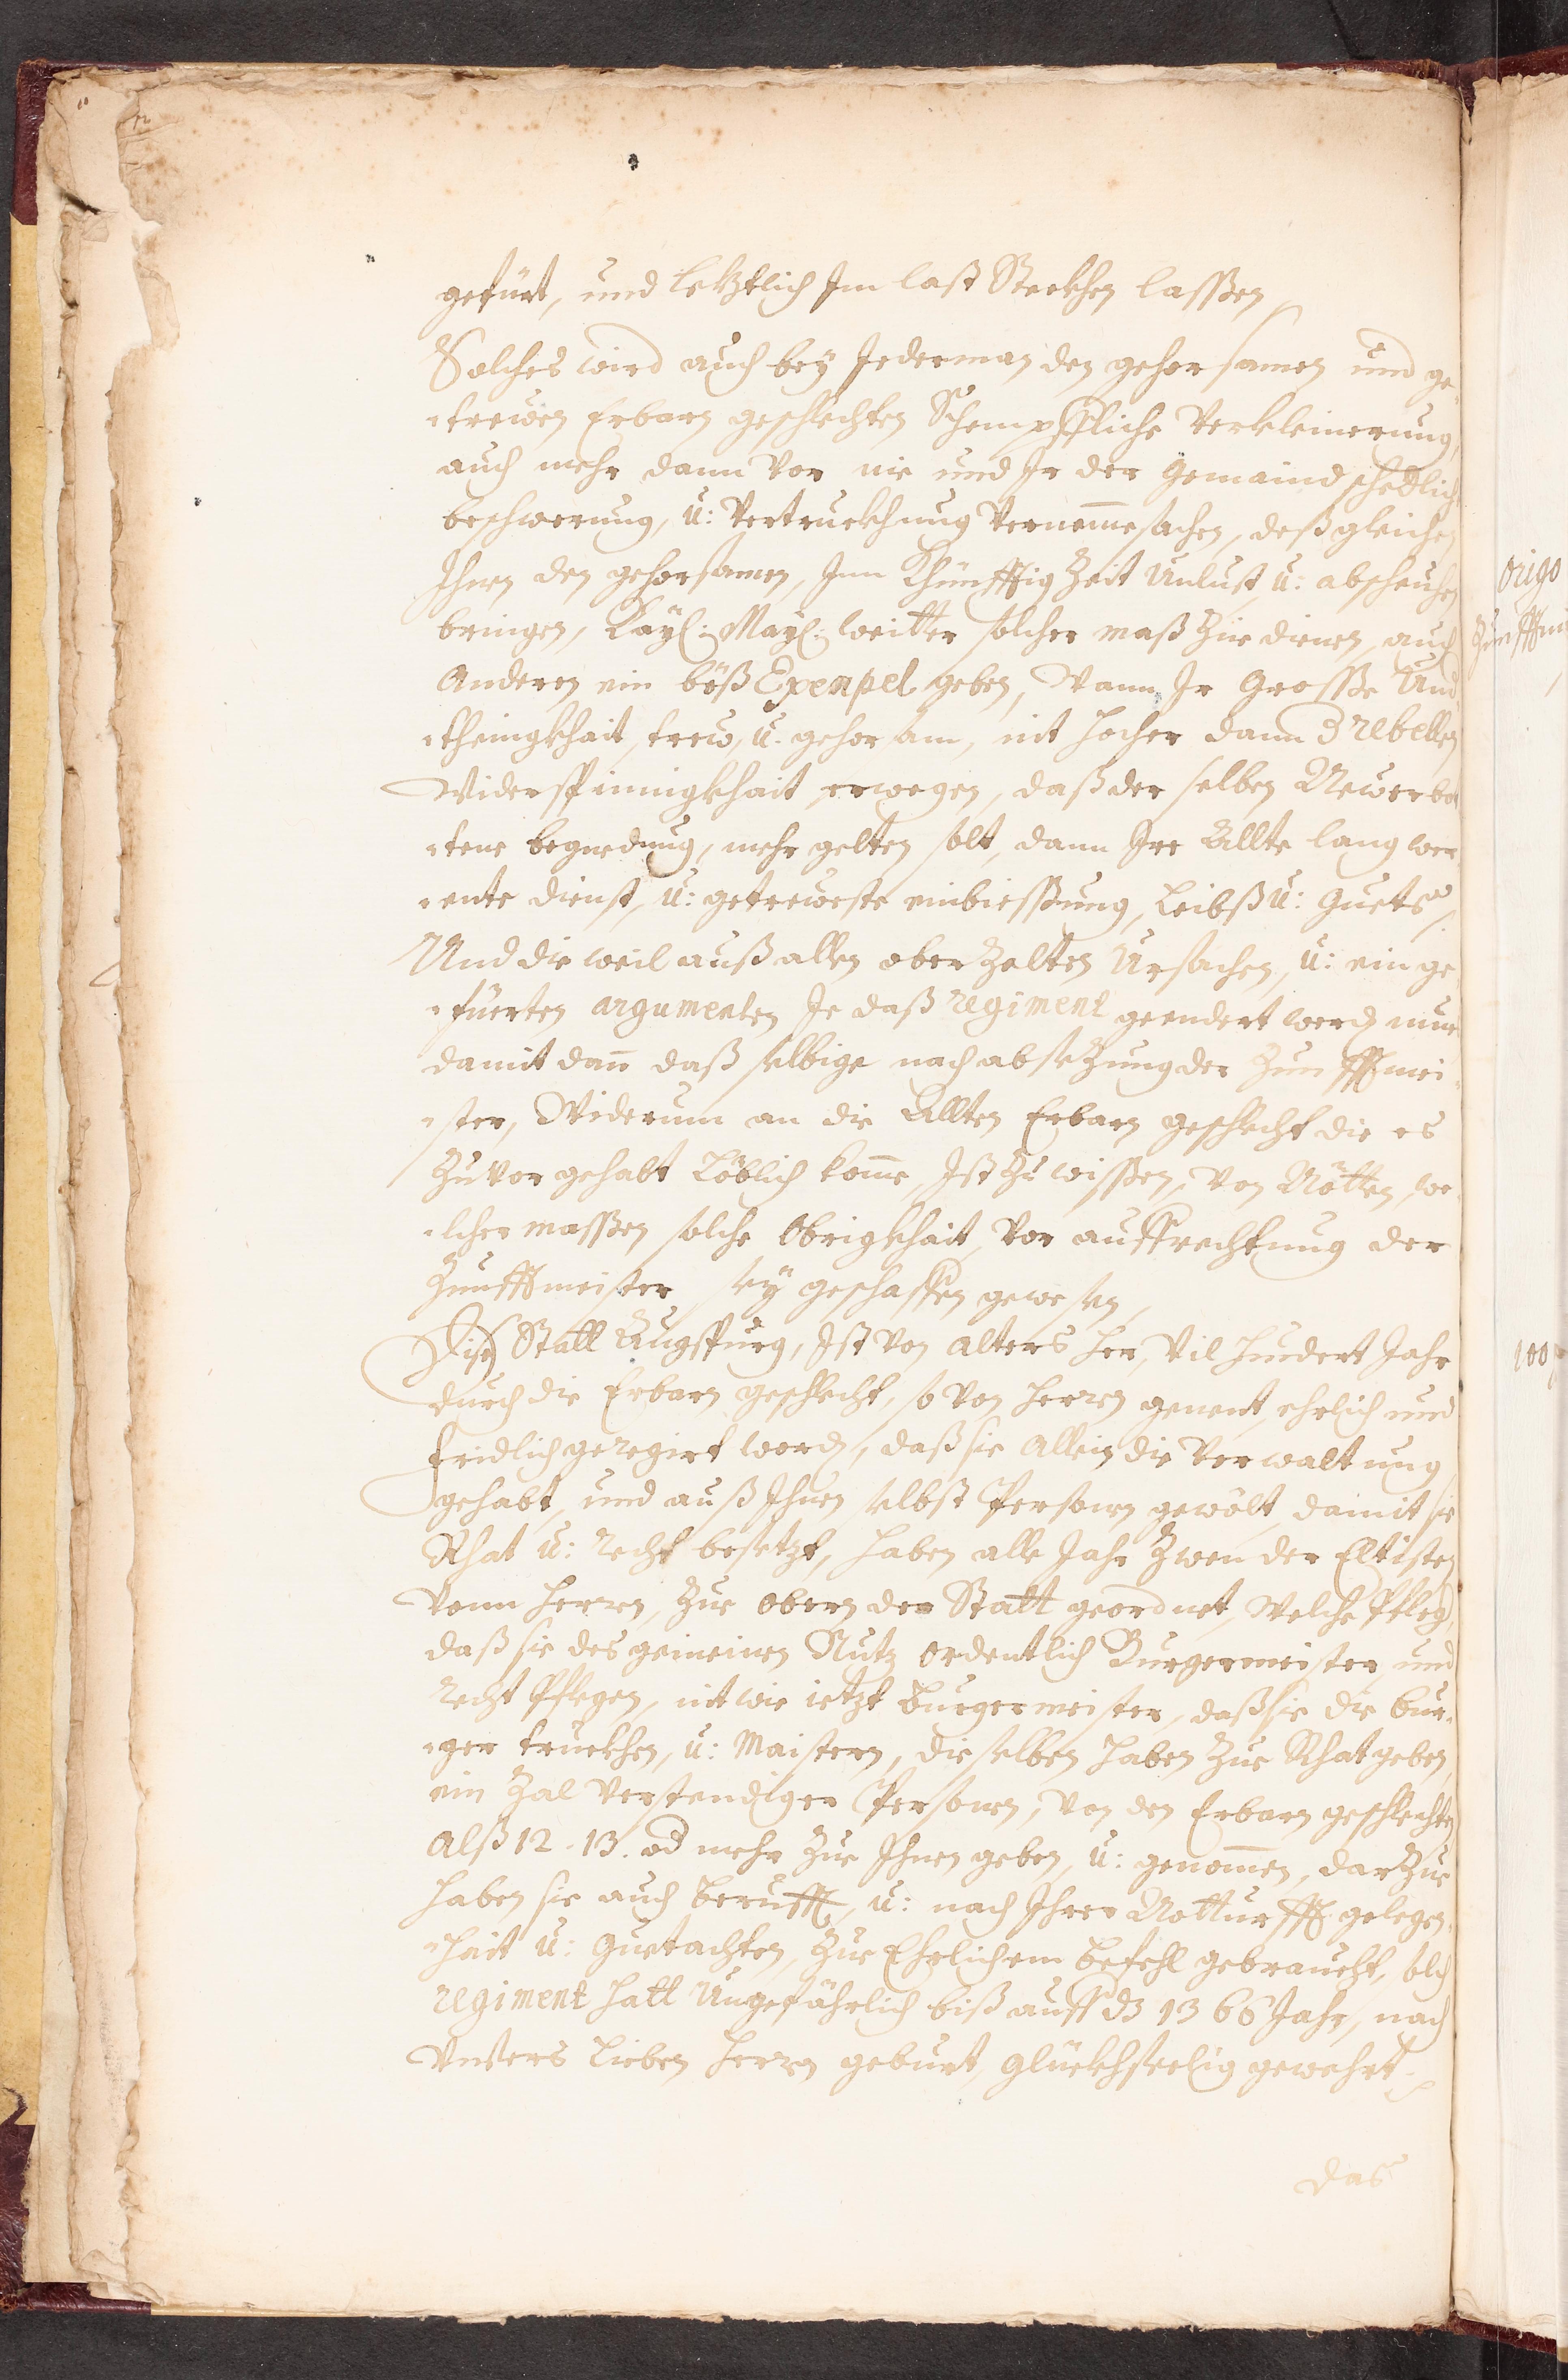 gefürt, und letztlich Im last Steckhen lassen
Solches wird auch bey Jederman den gehorsamen und ge„
„trewen Erbarn geschlechten Schempffliche Verkleinerung,
auch mehr dann Vor nie und Jr der Gemaind schedlich
beschwerung, u: Vertruckhnug Verursachen, deßgleichen
Ihnen den gehorsamen, Inn Khünfftig Zeit Unlust, u: abscheuhen
bringen, Kayl: Mayl: weitter solcher maß Zue dienen, auch
Anderen ein böß Exempel geben, Wann Jr Grosse Und„
„theingkhait, trew, u: gehorsam, nit hocher dann 3 rebellen
Widerspinnigkhait erwegen, daß derselben Newerbo„
„tene begnedung, mehr gelten solt, dann Ire Allte lang wer„
„ente dienst, u: getreweste einbiessung, Leibß u: Guets.
Und die weil auß allen oberzelten Ursachen, u: einge„
„fuerten argumenten Je daß regiment geendert werden mues
damit dann daß selbige nach absetzung der Zunfftmei„
„ster, Widerum an die Allten Erbarn geschlecht die es
Zuvor gehabt Löblich komme, Ist Zu wissen, von Nötten, we„
„lcher massen solche Obrigkhait, Vor auffrechtnug der
Zunfftmeister sey geschaffen gewesen,
Dise Statt Augspurg, Ist von alters her, Vil hundert Jahr
durch die Erbarn geschlecht, so von Herren genent, ehrlich und
fridlich geregirt worden, daß sie Allein die Verwaltung
gehabt, und auß Ihnen selbst Personen gewölt, damit sie
Rhat u: recht besetzt, haben alle Jahr Zwen der Eltisten
Vonn Herren, Zue Obern der Statt geordnet, Welche Pfleg,
daß sie des gemeinen Nutz ordentlich Burgermeister, und
recht Pflegen, nit wie ietzt Burgermeister, daß sie die bur„
„ger truckhen, u: Maistern, dieselben haben Zue Rhat geben,
ein Zal Verstendiger Personen, von den Erbarn geschlechten
Alß 12. 13. od mehr Zue Ihnen geben, u: genommen, darzue
haben sie auch berufft, u: nach Ihrer Notturfft gelegen„
„hait u: Guetachten, Zue Ehrlichem befehl gebraucht, solch
regiment hatt Ungefährlich biß auff dz 1366 Jahr, nach
Unsers Lieben Herrn geburt, Glückhseelig gewehrt.
das
origo
Zunfftm
100